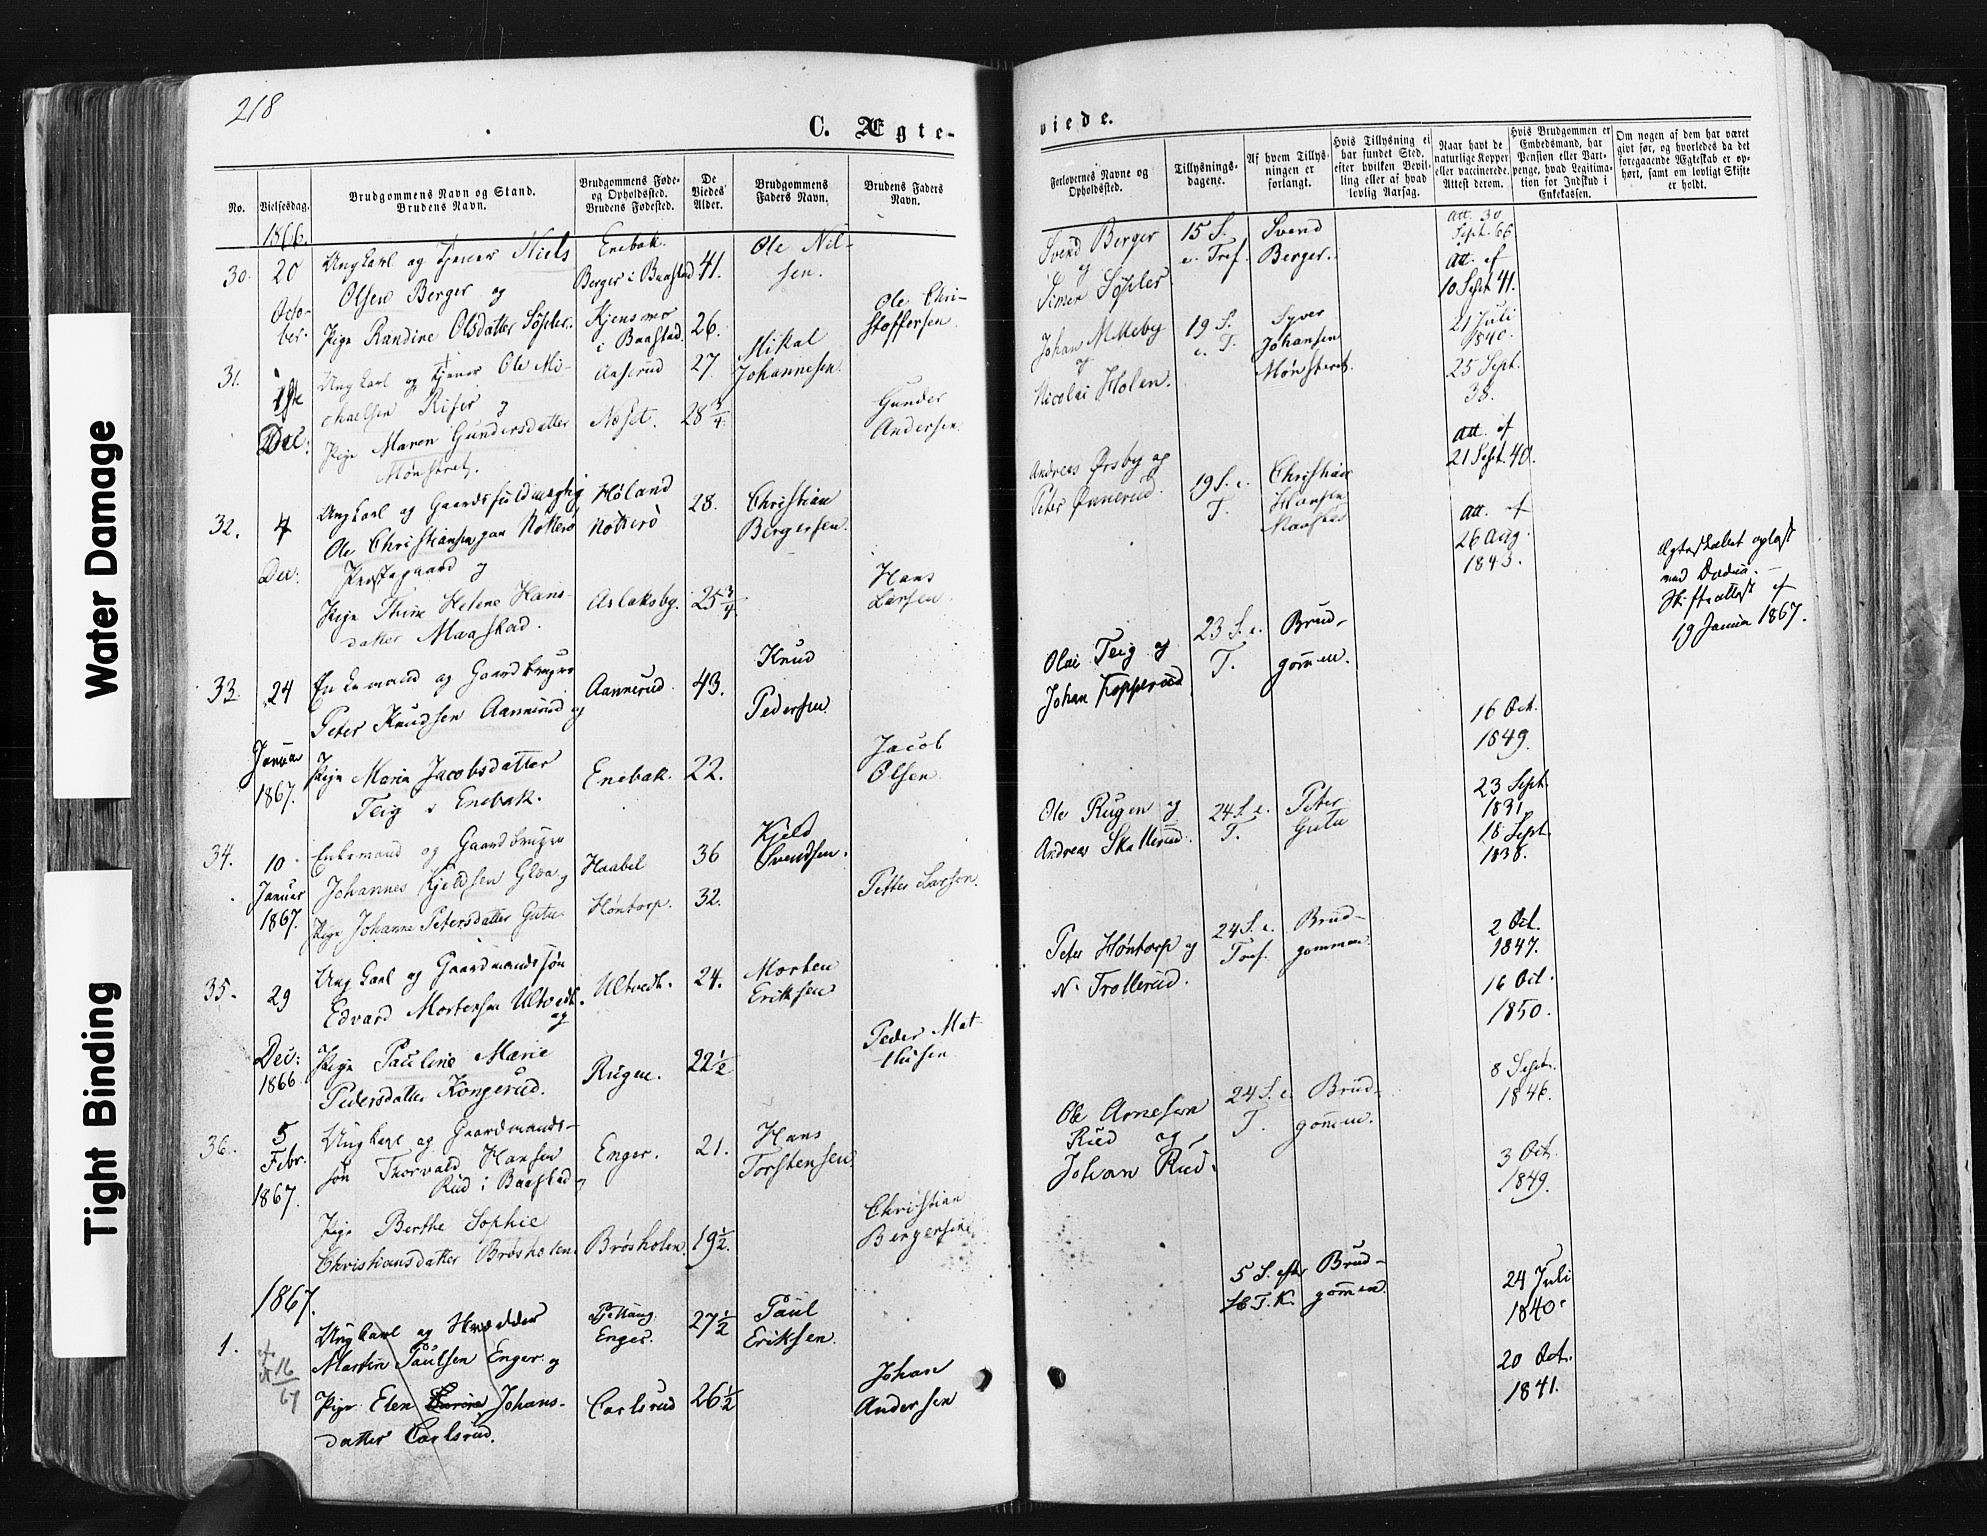 218
C. Ægte-
viede.
No.
Vielsesdag.
Brudgommens Navn og Stand.
Brudens Navn.
Brudgommens Føde-
og Opholdssted.
Brudens Fødested.
De
Viedes
Alder.
Brudgommens
Faders Navn.
Brudens Faders
Navn.
Forlovernes Navne og
Opholdssted.
Tillysnings-
dagene.
Af hvem Tillys-
ningen er
forlangt.
Hvis Tillysning ei
har fundet Sted,
efter hvilken Bevil-
ling eller af hvad
lovlig Aarsag.
Naar havt de
naturlige Kopper
eller vaccinerede.
Attest derom.
Hvis Brudgommen er
Embedsmand, har
Pension eller Vart-
penge, hvad Legitima-
tion for Indskud i
Enkekassen.
Om nogen af dem har været
gift før, og hvorledes da det
foregaaende Ægteskab er op-
hørt, samt om lovligt Skifte
er holdt.
1866.
30. 20
Octo-
ber.
Ungkarl og tjener Niels
Olsen Berger og
Pige Randine Olsdatter Søpler.
Enebak.
Berger i Baastad
Kjensmo
i Baastad
41.
26.
Ole Nil-
sen.
Ole Chri-
stoffersen
Svend Berger
og
Simen Søpler
15 S.
e. Tref.
Svend
Berger.
Att. 30
Sept. 66
Att. af
10 Sept 41.
31. 1ste
Dec.
Ungkarl og tjener Ole Mi-
kaelsen Riser og
Pige Maren Gundersdatter
Mønstret.
Næset.
27
28 3/4
Mikal
Johannesen.
Gunder
Andersen
Johan Melleby
og
Nicolai Holen.
19 S.
e. T.
Syver
Johansen
Mønstret.
21 Juli
1840.
25 Sept.
38.
32. 4
Dec:
Ungkarl og Gaardsfuldmægtig
Ole Christiansen paa Notterø
Præstegaard og
Pige Thine Helene Hans-
datter Maastad.
Høland
Notterø
Aslaksby.
28.
25 3/4
Christian
Bergersen.
Hans
Larsen
Andreas Ørsby og
Peter Ønnerud.
19 S. e.
T.
Christian
Hansen
Maastad
Att. af
21 Sept. 40.
Att. af
26 Aug.
1843.
33. 24
Januar
1867.
Enkemand og Gaardbruger
Peter Knudsen Aannerud og
Pige Marin Jacobsdatter
Teig i Enebak.
Aannerud
Enebak.
43.
22.
Knud
Pedersen
Jacob
Olsen
Olai Teig og
Johan Kopperud
23 S. e.
T.
Brud-
gommen.
16 Oct.
1849.
Ægteskabet opløst
ved Døden.
Skifteattest af
19 Januar 1867.
34. 10
Januar
1867.
Enkemand og Gaardbruger
Johannes Kjeldsen Gloa og
Pige Johanne Petersdatter Gutu
Haabel
Høntorp.
36
32.
Kjeld
Svendsen.
Petter Larsen
Ole Rugen og
Andreas Skallerud.
24 S. e.
T.
Peter
Gutu
23 Sept.
1831
15 Sept.
1838.
35. 29
Dec:
1866
Ungkarl og Gaardmandssøn
Edvard Mortensen Ultvedt.
og
Pige Pauline Marie
Pedersdatter Kongerud.
Ultvedt.
Rugen.
24.
22 1/2
Morten
Eriksen
Peder Mat-
thisen
Peter Høntorp og
N. Trollerud.
24 S. e.
Tref.
Brud-
gommen
2 Oct.
1847.
16 Oct.
1850.
36. 5
Febr.
1867.
Ungkarl og Gaardmands-
søn Thorvald Hansen
Rud i Baastad og
Pige Berthe Sophie
Christiansdatter Brøsholen
Enger.
Brøsholen
21.
19 1/2.
Hans
Torstensen
Christian
Bergersen
Ole Arnesen
Rud og
Johan Rud.
24 S. e.
T.
Brud-
gommen.
8 Sept.
1846.
3 Oct.
1849.
1867.
1.
16
67
Ungkarl og Skrædder
Martin Paulsen Enger og
Pige Elen Johans-
datter Carlsrud.
Enger.
Carlsrud
27 1/2
26 1/2
Paul
Eriksen.
Johan
Andersen
5 S. efter
H. T. K.
Brud-
gommen.
24 Juli
1840.
20 Oct.
1841.
Water Damage
Tight Binding